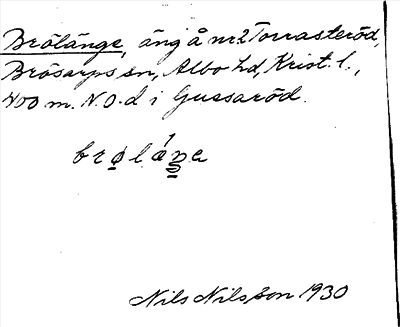 Brölänge, äng å nr 2 Torrasteröd,
Brösarps sn, Albo hd, Krist. l.,
400 m. N.O.d i Gussaröd.
Nils Nilsson 1930